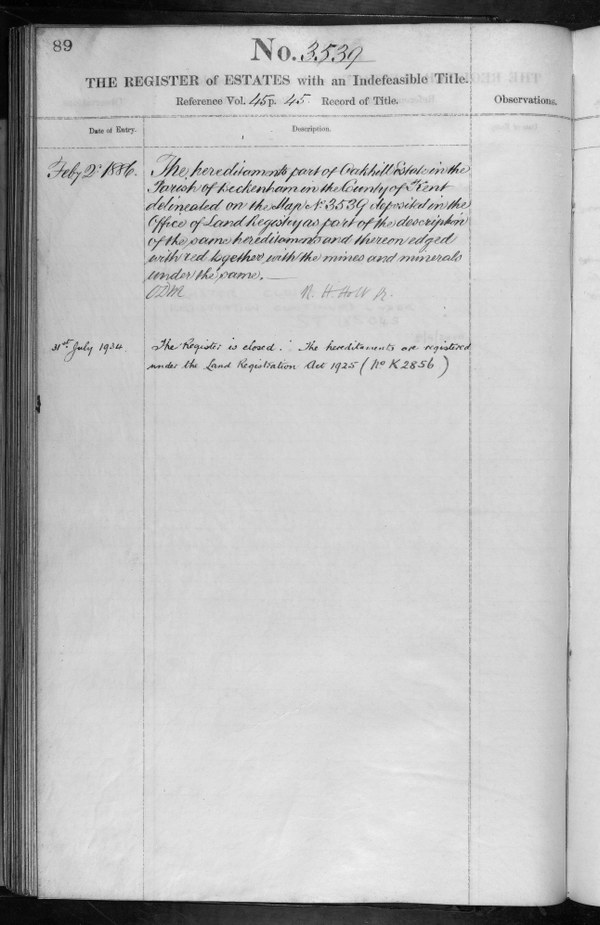 89
No. 3539
THE REGISTER of ESTATES with an Indefeasible Title.
Reference Vol. 45 p. 45 Record of Title.
Observations.
Date of Entry.
Description.
Feby 2d 1886.
The hereditaments part of Oakhill Estate in the
Parish of Beckenham in the County of Kent
delineated on the Map No 3539 deposited in the
Office of Land Registry as part of the description
of the same hereditaments and thereon edged
with red together with the mines and minerals
under the same.
R. H. Holt Jr.
31st July 1934
The Register is closed. The hereditaments are registered
under the Land Registration Act 1925 (No K 2856)